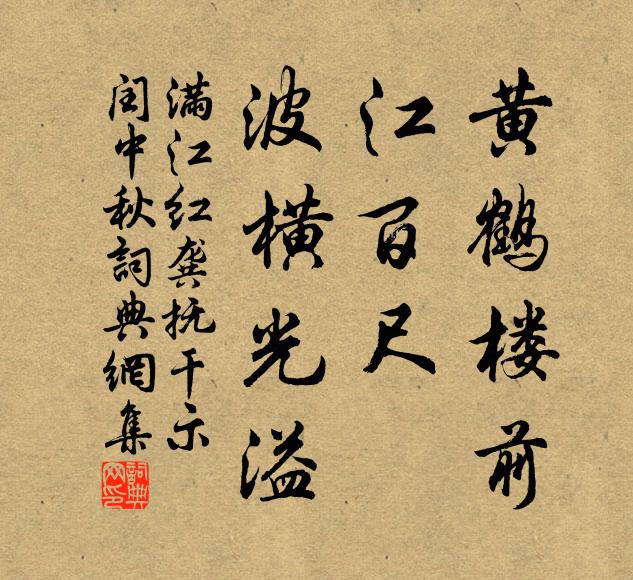 黄鹤楼前
江百尺
波横光溢
满江红龚抚干示
闰中秋詞典網集
詞典
网印